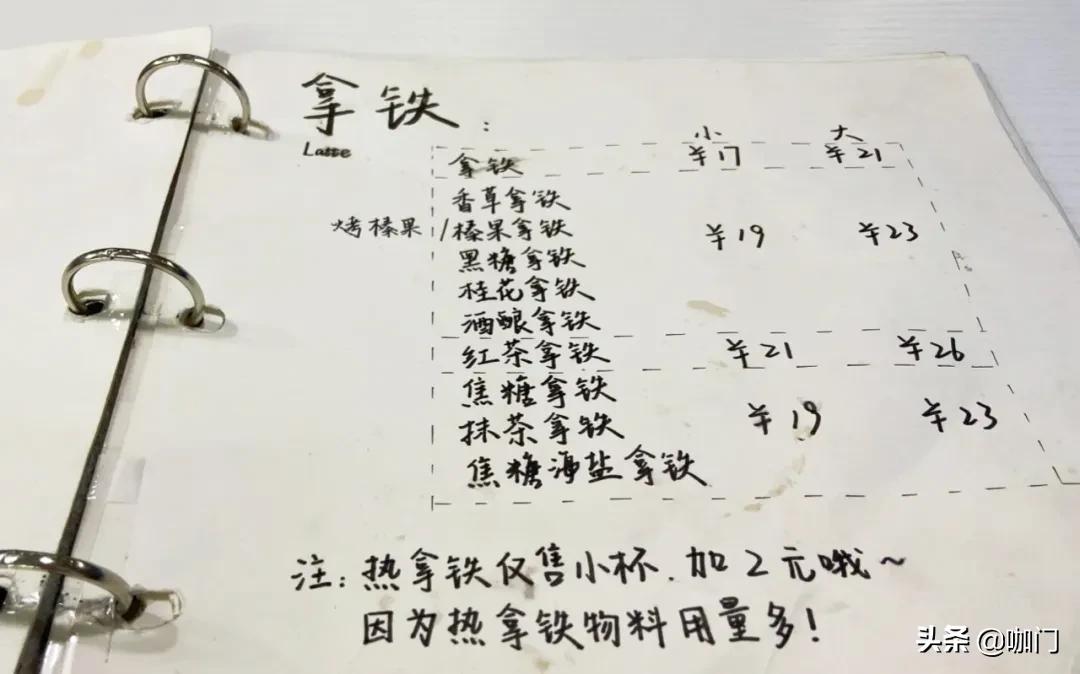 拿铁：
Latte
小 大
拿铁 ¥17 ¥21
香草拿铁
烤榛果/榛果拿铁 ¥19 ¥23
黑糖拿铁
桂花拿铁
酒酿拿铁
红茶拿铁 ¥21 ¥26
焦糖拿铁
抹茶拿铁 ¥19 ¥23
焦糖海盐拿铁
注：热拿铁仅售小杯.加2元哦~
因为热拿铁物料用量多!
头条 @咖门